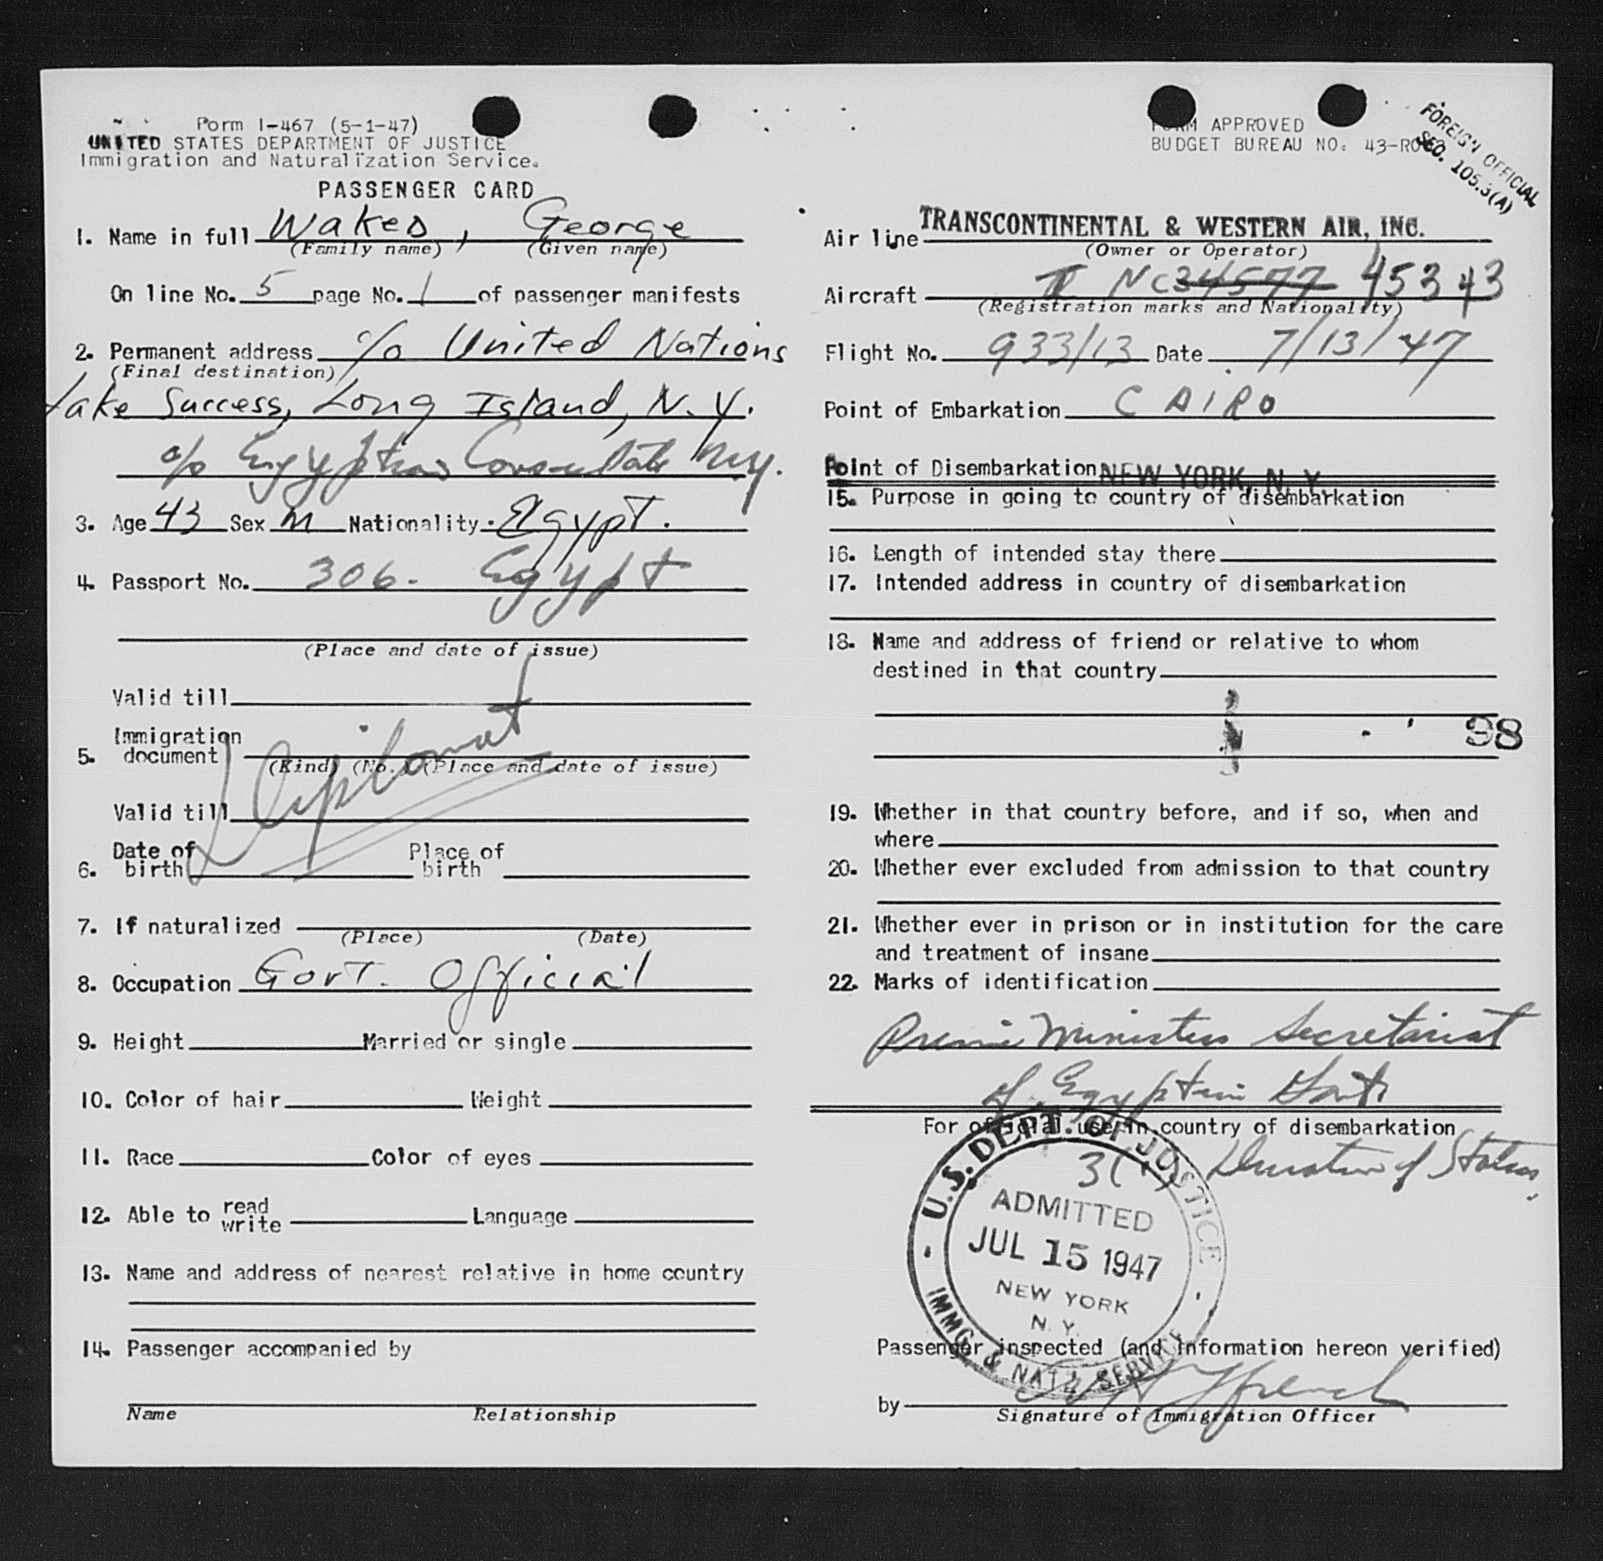 Form I-467 (5-1-47)
UNITED STATES DEPARTMENT OF JUSTICE
Immigration and Naturalization Service.
PASSENGER CARD
1. Name in full Wakes, George
(Family name) (Given name)
On line No. 5 page No. 1 of passenger manifests
2. Permanent address c/o United Nations
(Final destination)
Lake Success, Long Island, N.Y.
c/o Egyptian Consulate N.Y.
3. Age 43 Sex M Nationality Egypt.
4. Passport No. 306. Egypt
(Place and date of issue)
Valid till
5. Immigration document
(Kind) (No.) (Place and date of issue)
Diplomat
Valid till
6. Date of birth Place of birth
7. If naturalized
(Place) (Date)
8. Occupation Govt. Official
9. Height Married or single
10. Color of hair Weight
11. Race Color of eyes
12. Able to read write Language
13. Name and address of nearest relative in home country
14. Passenger accompanied by
Name Relationship
FORM APPROVED
BUDGET BUREAU NO. 43-R
FOREIGN OFFICIAL
SEC. 105.3(A)
Air line TRANSCONTINENTAL & WESTERN AIR, INC.
(Owner or Operator)
Aircraft NC34577 45343
(Registration marks and Nationality)
Flight No. 933/13 Date 7/13/47
Point of Embarkation CAIRO
Point of Disembarkation NEW YORK, N. Y.
15. Purpose in going to country of disembarkation
16. Length of intended stay there
17. Intended address in country of disembarkation
18. Name and address of friend or relative to whom
destined in that country
98
19. Whether in that country before, and if so, when and
where
20. Whether ever excluded from admission to that country
21. Whether ever in prison or in institution for the care
and treatment of insane
22. Marks of identification
Prime Ministers Secretariat
of Egyptian Govt
For official use in country of disembarkation
3(1) Duration of Status,
U.S. DEPT. OF JUSTICE
ADMITTED
JUL 15 1947
NEW YORK
N. Y.
IMMG. & NATZ. SERVICE
Passenger inspected (and information hereon verified)
by French
Signature of Immigration Officer